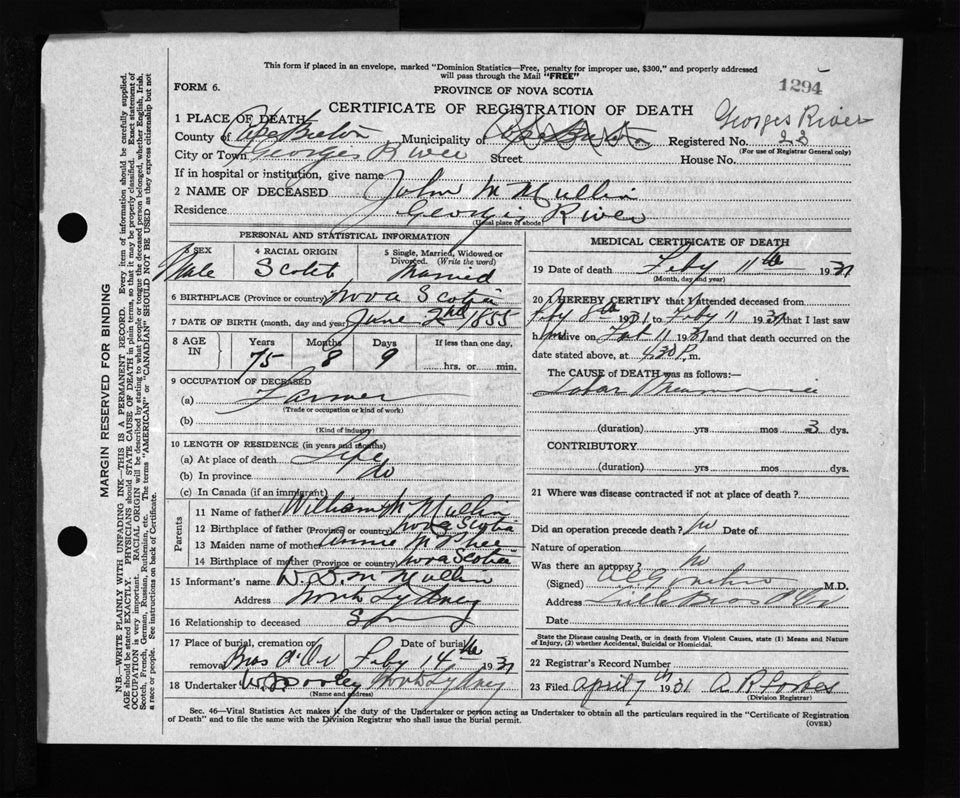 This form if placed in an envelope, marked "Dominion Statistics—Free, penalty for improper use, $300," and properly addressed
will pass through the Mail "FREE"
1294
FORM 6.
PROVINCE OF NOVA SCOTIA
CERTIFICATE OF REGISTRATION OF DEATH
Georges River
1 PLACE OF DEATH
County of Cape Breton Municipality of Cape Breton Registered No. 22
(For use of Registrar General only)
City or Town Georges River Street House No.
If in hospital or institution, give name
2 NAME OF DECEASED John McMullin
Residence Georges River
(Usual place of abode)
PERSONAL AND STATISTICAL INFORMATION
3 SEX Male
4 RACIAL ORIGIN Scotch
5 Single, Married, Widowed or
Divorced. (Write the word)
Married
6 BIRTHPLACE (Province or country) Nova Scotia
7 DATE OF BIRTH (month, day and year) June 2nd 1855
8 AGE IN Years Months Days If less than one day,
75 8 9 hrs. or min.
9 OCCUPATION OF DECEASED
(a) Farmer
(Trade or occupation or kind of work)
(b)
(Kind of industry)
10 LENGTH OF RESIDENCE (in years and months)
(a) At place of death Life
(b) In province do
(c) In Canada (if an immigrant)
Parents
11 Name of father William McMullin
12 Birthplace of father (Province or country) Nova Scotia
13 Maiden name of mother Annie McPhee
14 Birthplace of mother (Province or country) Nova Scotia
15 Informant's name D. D. McMullin
Address North Sydney
16 Relationship to deceased
17 Place of burial, cremation or Date of burial
removal Bras d'Or Feby 14th 1931
18 Undertaker W. Dooley North Sydney
(Name and address)
MEDICAL CERTIFICATE OF DEATH
19 Date of death Feby 11th 1931
(Month, day and year)
20 I HEREBY CERTIFY that I attended deceased from
Feby 8th 1931 to Feby 11 1931 that I last saw
him alive on Feb 11 1931 and that death occurred on the
date stated above, at 4.30 P. m.
The CAUSE of DEATH was as follows:—
Lobar Pneumonia
(duration) yrs mos 3 dys.
CONTRIBUTORY
(duration) yrs mos dys.
21 Where was disease contracted if not at place of death?
Did an operation precede death? No Date of
Nature of operation
Was there an autopsy? No
(Signed) M.D.
Address Little Bras d'Or
Date
State the Disease causing Death, or in death from Violent Causes, state (1) Means and Nature
of Injury, (2) whether Accidental, Suicidal or Homicidal.
22 Registrar's Record Number
23 Filed April 7th 1931 A R Forbes
(Division Registrar)
Sec. 46—Vital Statistics Act makes it the duty of the Undertaker or person acting as Undertaker to obtain all the particulars required in the "Certificate of Registration
of Death" and to file the same with the Division Registrar who shall issue the burial permit.
(OVER)
MARGIN RESERVED FOR BINDING
N.B.—WRITE PLAINLY WITH UNFADING INK—THIS IS A PERMANENT RECORD. Every item of information should be carefully supplied.
AGE should be stated EXACTLY. PHYSICIANS should STATE CAUSE OF DEATH in plain terms, so that it may be properly classified. Exact statement of
OCCUPATION is very important. RACIAL ORIGIN will be described by stating to what people or tongue the deceased person belonged, whether English, Irish,
Scotch, French, German, Russian, Ruthenian, etc. The terms "AMERICAN" or "CANADIAN" SHOULD NOT BE USED as they express citizenship but not
a race or people. See instructions on back of Certificate.